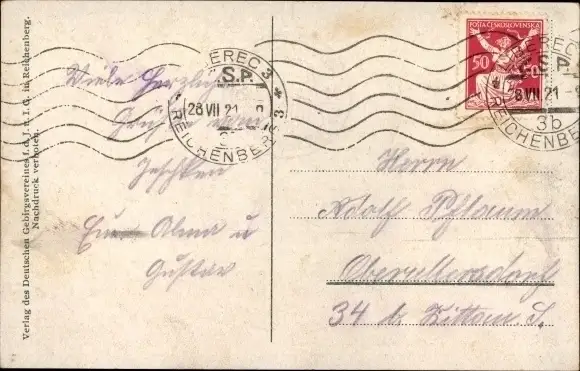 Verlag des Deutschen Gebirgsvereines f. d. J.- u. I. G. in Reichenberg.
Nachdruck verboten.
Viele herzliche
Grüße vom
Jeschken
Eure Alma u
Gustav
EREC 3
S.P.
28 VII 21
REICHENBERG 3
POŠTA ČESKOSLOVENSKÁ
50 50
EREC
S.P.
8 VII 21
3b
REICHENBERG
Herrn
Adolf Pflaum
Oberullersdorf
34 b. Zittau S.